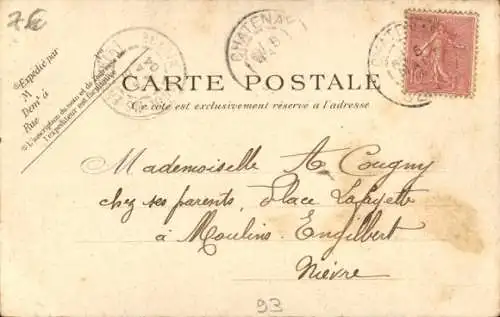 7€
Expédié par
M
Dem^t à
Rue
L'inscription du nom et de l'adresse de
l'expéditeur est facultative
CHATENAY
CHATENAY
CARTE POSTALE
Ce côté est exclusivement réservé à l'adresse
Mademoiselle A Cougny
chez ses parents, Place Lafayette
à Moulins-Engilbert
Nièvre
93